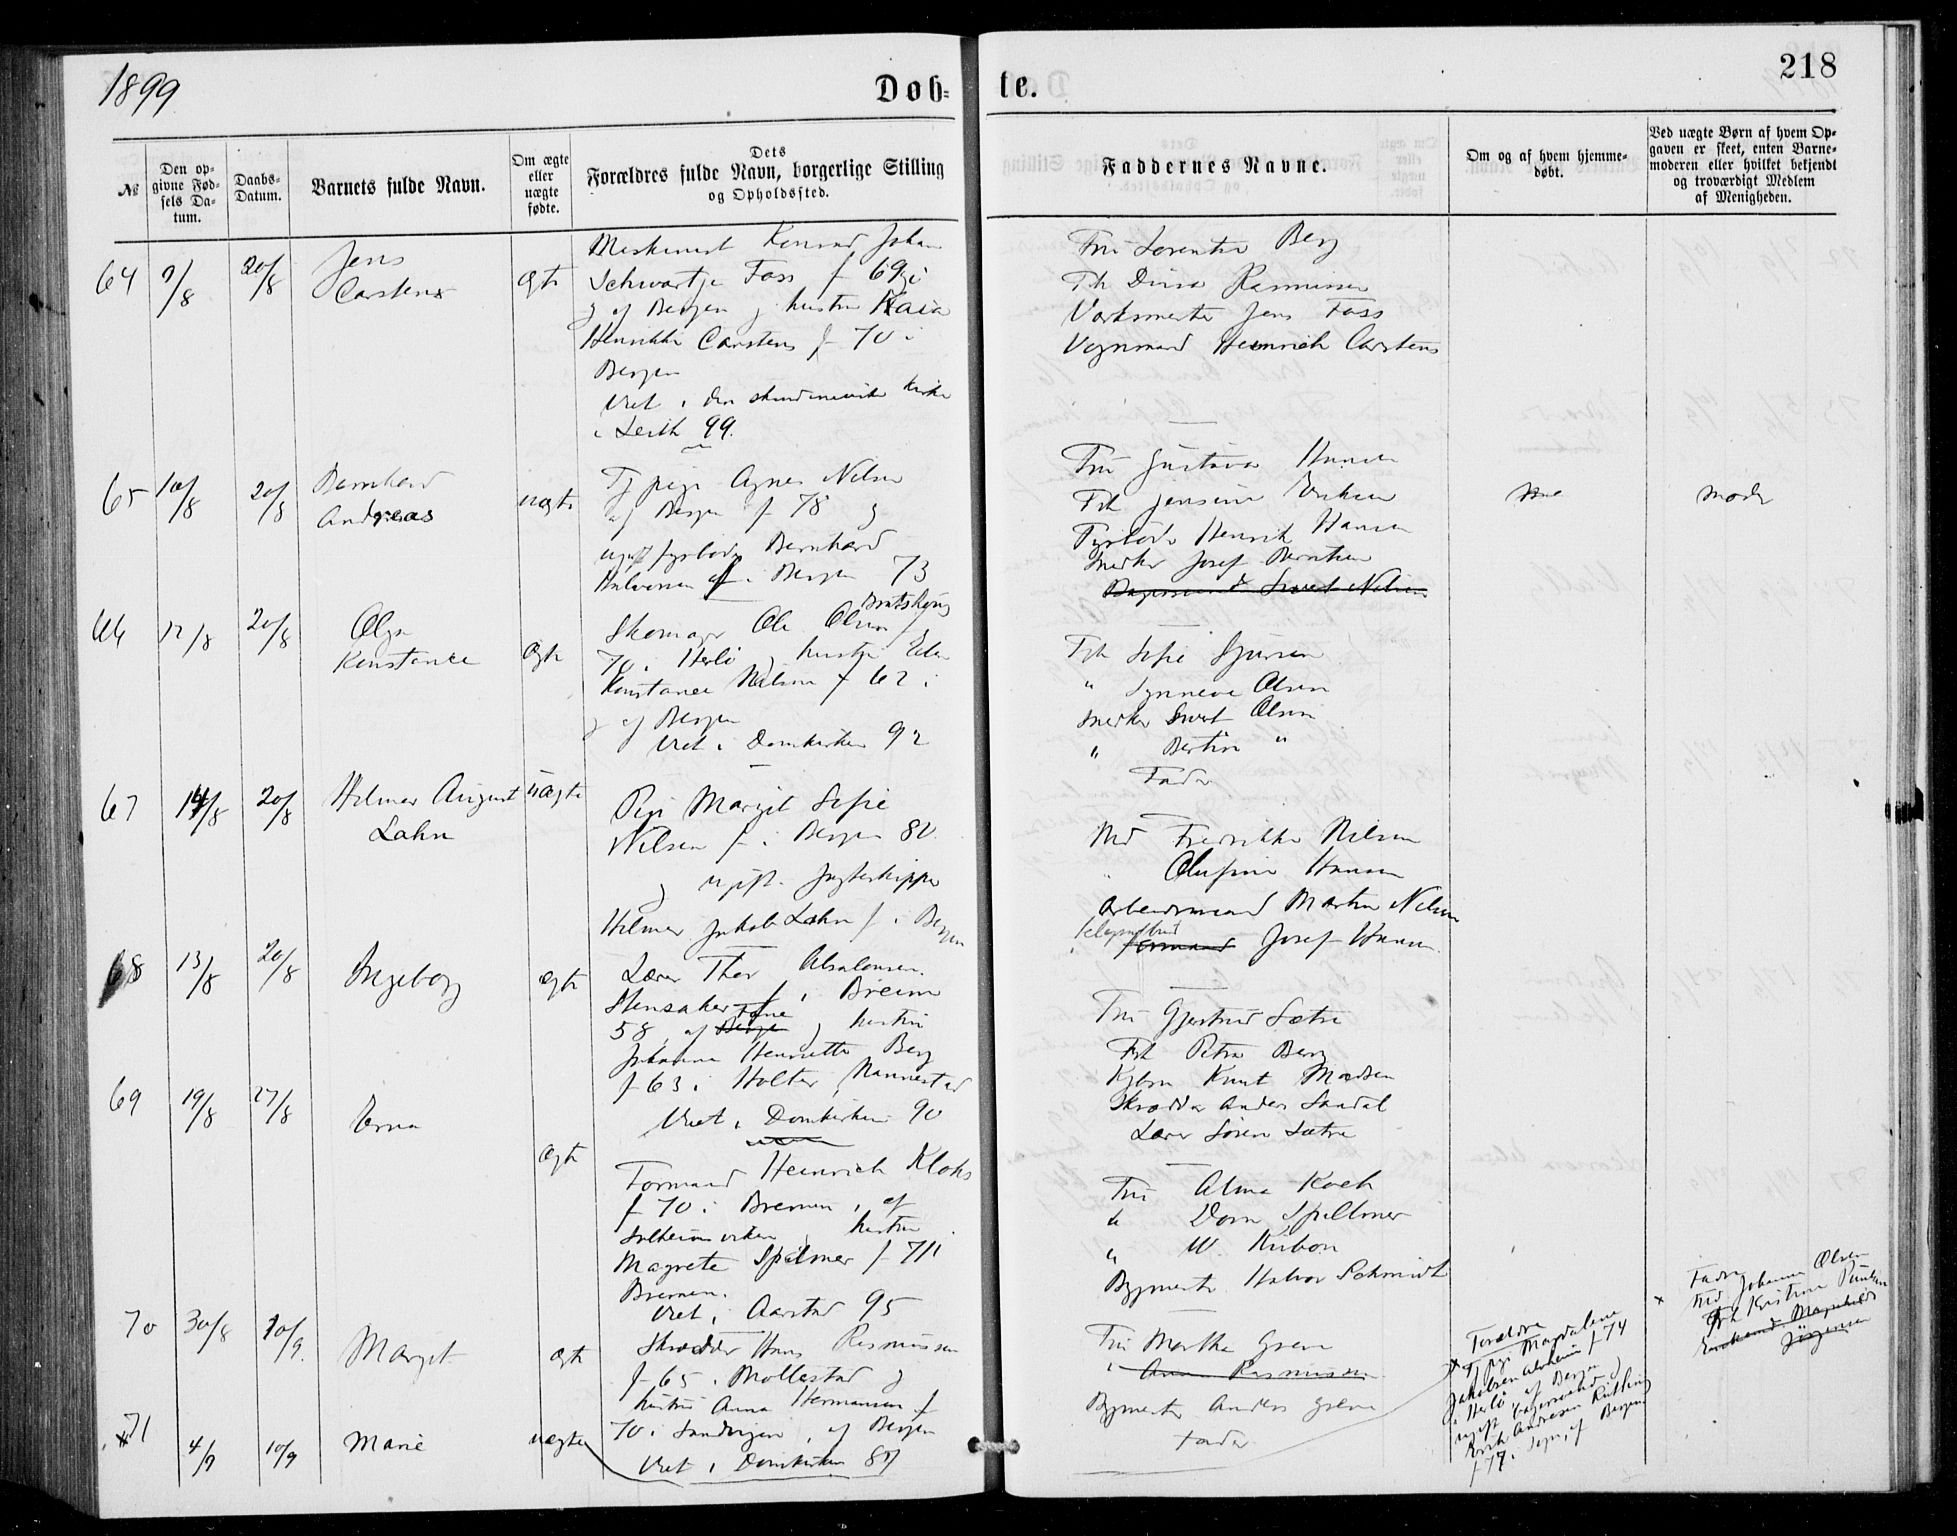 1899
Døb-
te.
218
№
Den op-
givne Fød-
sels Da-
tum.
Daabs-
Datum.
Barnets fulde Navn.
Om ægte
eller
uægte
fødte.
Dets
Forældres fulde Navn, borgerlige Stilling
og Opholdssted.
Faddernes Navne.
Om og af hvem hjemme-
døbt.
Ved uægte Børn af hvem Op-
gaven er skeet, enten Barne-
moderen eller hvilket bekjendt
og troværdigt Medlem
af Menigheden.
64
9/8
20/8
Jens
Carstens
ægte
Maskinist Konrad Johan
Schwartje Foss f 69 i
og af Bergen og hustru Kaia
Henrikke Carstens f 70 i
Bergen
Viet i den skandinaviske Kirke
i Leith 99.
Fru Lorentze Berg
Frk Dina Rasmussen
Værksmester Jens Foss
Vognmand Heinrich Carstens
65
10/8
20/8
Bernhard
Andreas
uægte
Tj pige Agnes Nilsen
af Bergen f 78 og
ugift fyrbøder Bernhard
Halvorsen f i Bergen 73
Fru Gustava Hansen
Frk Jensine Eriksen
Fyrbøder Henrik Hansen
Snedker Josef Berntsen
Sivert Nilsen
moder
66
12/8
20/8
Olga
Konstance
ægte
Skomager Ole Olsen
70 i Herlø og hustru
Konstance Nilsen f 62 i
og af Bergen
Viet i Domkirken 92
Frk Sofie Sjursen
" Synneve Olsen
Snedker Sivert Olsen
" Bertin "
Fader
67
14/8
20/8
Hilmar August
Lahn
uægte
Pige Margit Sofie
Nilsen f i Bergen 80
og ugift Jagteskipper
Hilmar Jakob Lahn f i Bergen
Mad Fredrikke Nilsen
" Olufine Hansen
Arbeidsmand Martin Nilsen
Formand Josef Hansen
68
13/8
20/8
Ingeborg
ægte
Lærer Thor Absalonsen
Stensaker f i Breim
58, af Bergen og hustru
Johanna Henriette Berg
f 63 i Holter, Nannestad
Viet i Domkirken 90
Fru Gjertrud Sætre
Frk Petra Berg
Kjøbm Knut Madsen
Skrædder Anders Sandal
Lærer Søren Sætre
69
19/8
27/8
Erna
ægte
Formand Heinrich Kloks
f 70 i Bremen, af
Solheimsviken, hustru
Magrete Spilmer f 71 i
Bremen.
Viet i Aarstad 95
Fru Alma Koch
" Dora Spillmer
" W. Kirbon
Bygmester Halvor Schmidt
70
30/8
10/9.
Margit
ægte
Skrædder Hans Rasmussen
f 65 i Mollestad og
hustru Anna Hermansen f
70 i Sandvigen, af Bergen
Viet i Domkirken 89
Fru Martha Green
" Anna Rasmussen
Bygmester Anders Green
Fader
× 71
4/9
10/9
Marie
uægte
× Forældre
Tj pige Magdalene
Jakobsen f 74
i Herlø af Bergen
ugift bagersvend
Erik Andreas
f 77 i Sogn, af Bergen
×
Fadre
Md Johanna Olsen
Frk Kristine
Jørgensen